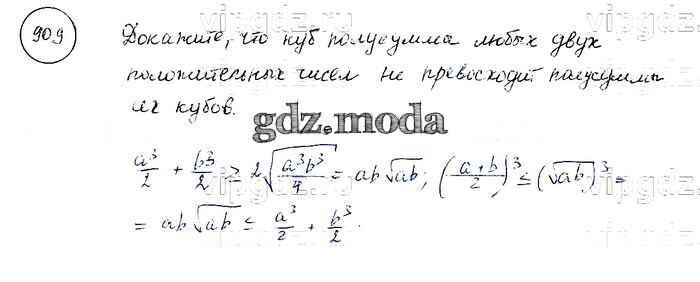 909
Докажите, что куб полусуммы любых двух
положительных чисел не превосходит полусуммы
их кубов.
gdz.moda
a³/2 + b³/2 ≥ 2√(a³b³/4) = ab√ab; ((a+b)/2)³ ≤ (√ab)³ =
= ab√ab ≤ a³/2 + b³/2.